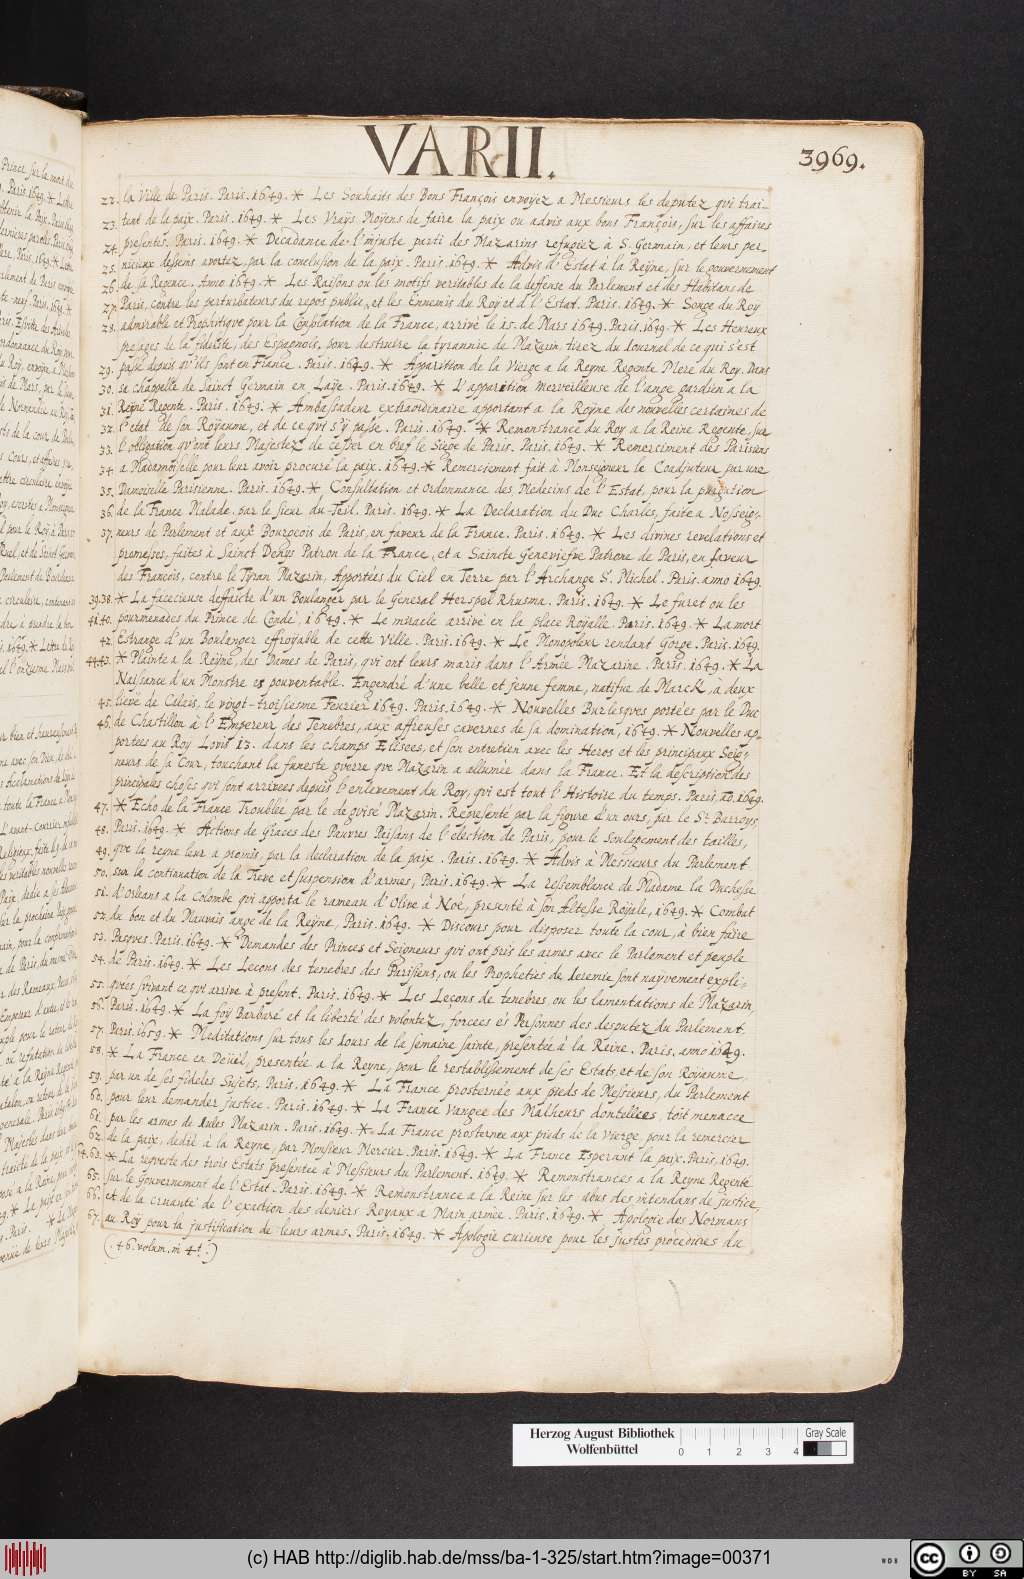 VARII.
3969.
22. la Ville de Paris. Paris. 1649. * Les Souhaits des Bons François envoyez a Messieurs les deputez qvi trai-
23. tent de la paix. Paris. 1649. * Les Vraÿs Moyens de faire la paix ou advis aux bons François, sur les affaires
24. presentes. Paris. 1649. * Decadance de l'injuste parti des Mazarins refugiez à S. Germain, et leurs per
25. nicieux desseins avortez, par la conclusion de la paix. Paris. 1649. * Advis d'Estat à la Reÿne, sur le gouvernement
26. de sa Regence. Anno 1649. * Les Raisons ou les motifs veritables de la deffense du Parlement et des Habitans de
27. Paris, contre les perturbateurs du repos public, et les Ennemis du Roy et d l'Estat. Paris. 1649. * Songe du Roy
28. admirable et Prophetiqve pour la Consolation de la France, arrivé le 15. de Mars 1649. Paris. 1649. * Les Heureux
presages de la fidelité, des Espagnols, pour destruire la tyrannie de Mazarin, tirez du Iournal de ce qui s'est
29. passé depuis qv'ils sont en France. Paris. 1649. * Apparition de la Vierge a la Reyne Regente Mere du Roy. Dans
30. sa chappelle de Sainct Germain en Laÿe. Paris. 1649. * L'apparition merveilleuse de l'ange gardien a la
31. Reÿne Regente. Paris. 1649. * Ambassadeur extraordinaire apportant a la Roÿne des nouvelles certaines de
32. l'etat de son Royaume, et de ce qvi s'y passe. Paris. 1649. * Remonstrance du Roy a la Reine Regente, sur
33. l'obligation qv'ont leurs Majestez de cesser en bref le Siege de Paris. Paris. 1649. * Remerciment des Parisiens
34. a Madamoiselle pour leur avoir procuré la paix. 1649. * Remerciement fait à Monseigneur le Coadjuteur par une
35. Damoiselle Parisienne. Paris. 1649. * Consultation et Ordonnance des Medecins de l'Estat, pour la purgation
36. de la France Malade. par le sieur du Teil. Paris. 1649. * La Declaration du Duc Charles, faite a Nosseig-
37. neurs de Parlement et aux Bourgeois de Paris, en faveur de la France. Paris. 1649. * Les divines revelations et
promesses, faites à Sainct Denys Patron de la France, et a Saincte Genevieve Patrone de Paris, en faveur
des François, contre le Tyran Mazarin, Apportées du Ciel en Terre par l'Archange S. Michel. Paris. anno 1649.
39.38. * La facecieuse deffaicte d'un Boulanger par le General Herspel Rhusma. Paris. 1649. * Le furet ou les
41.40. pourmenades du Prince de Condé, 1649. * Le miracle arrivé en la place Royalle. Paris. 1649. * La mort
42. Estrange d'un Boulanger effroyable de cette Ville. Paris. 1649. * Le Monopoleur rendant Gorge. Paris. 1649.
44.43. * Plainte a la Reÿne, des Dames de Paris, qvi ont leurs maris dans l'Armée Mazarine. Paris. 1649. * La
Naissance d'un Monstre es pouventable. Engendré d'une belle et jeune femme, natifve de Marck, à deux
45. lieüe de Calais, le vingt-troisiesme Feurier 1649. Paris. 1649. * Nouvelles Burlesqves portées par le Duc
46. de Chastillon à l'Empereur des Tenebres, aux affreuses cavernes de sa domination, 1649. * Nouvelles ap-
portées au Roy Lovis 13. dans les champs Elisees, et son entretien avec les Heros et les principaux Seig-
neurs de sa Cour, touchant la funeste gverre qve Mazarin a allumée dans la France. Et la description des
principales choses qvi sont arrivees depuis l'enlevement du Roy, qvi est tout l'Histoire du temps. Paris. ao. 1649.
47. * Echo de la France Troublée par le deguisé Mazarin. Representé par la figure d'un ours, par le Sr. Barroys,
48. Paris. 1649. * Actions de Graces des Pauvres Paisans de l'election de Paris, pour le Soulagement des tailles,
49. qve la reyne leur a promis, par la declaration de la paix. Paris. 1649. * Advis à Messieurs du Parlement
50. sur la continuation de la Treve et suspension d'armes, Paris. 1649. * La ressemblance de Madame la Duchesse
51. d'Orleans a la Colombe qvi apporta le rameau d'Olive à Noé, presenté à son Altesse Roÿale, 1649. * Combat
52. du bon et du Mauvais ange de la Reÿne, Paris. 1649. * Discours pour disposer toute la cour, à bien faire
53. Pasqves. Paris. 1649. * Demandes des Princes et Seigneurs qvi ont pris les armes avec le Parlement et peuple
54. de Paris. 1649. * Les Leçons des tenebres des Parisiens, ou les Propheties de Ieremie sont nayvement expli-
55. qvees svivant ce qvi arrive à present. Paris. 1649. * Les Leçons de tenebres, ou les lamentations de Mazarin,
56. Paris. 1649. * La foÿ Barbare et la liberté des volontez, forcees és Personnes des desputez du Parlement.
57. Paris. 1659. * Meditations sur tous les Iours de la semaine sainte, presentée à la Reine. Paris. anno 1649.
58. * La France en Deüil, presentée a la Reyne, pour le restablissement de ses Estats, et de son Royaume,
59. par un de ses fideles Sujets, Paris. 1649. * La France prosternée aux pieds de Messieurs, du Parlement
60. pour leur demander justice. Paris. 1649. * La France Vangee des Malheurs dont elle es, toit menacee
61. par les armes de Iules Mazarin. Paris. 1649. * La France prosternee aux pieds de la Vierge, pour la remercier
62. de la paix, dedié à la Reyne, par Monsieur Mercier. Paris. 1649. * La France Esperant la paix. Paris, 1649.
64.63. * La reqveste des trois Estats presentee a Messieurs du Parlement. 1649. * Remonstrances a la Reyne Regente
65. sur le Gouvernement de l'Estat. Paris. 1649. * Remonstrance a la Reine sur les abus des intendans de justice,
66. et de la cruauté de l'exaction des deniers Royaux a Main armée. Paris. 1649. * Apologie des Normans
67. au Roÿ pour la justification de leurs armes. Paris. 1649. * Apologie curieuse pour les justes procedures du
(.46. volum. in 4t.)
Herzog August Bibliothek
Wolfenbüttel
0 1 2 3 4
Gray Scale
(c) HAB http://diglib.hab.de/mss/ba-1-325/start.htm?image=00371
WDB
cc
BY SA